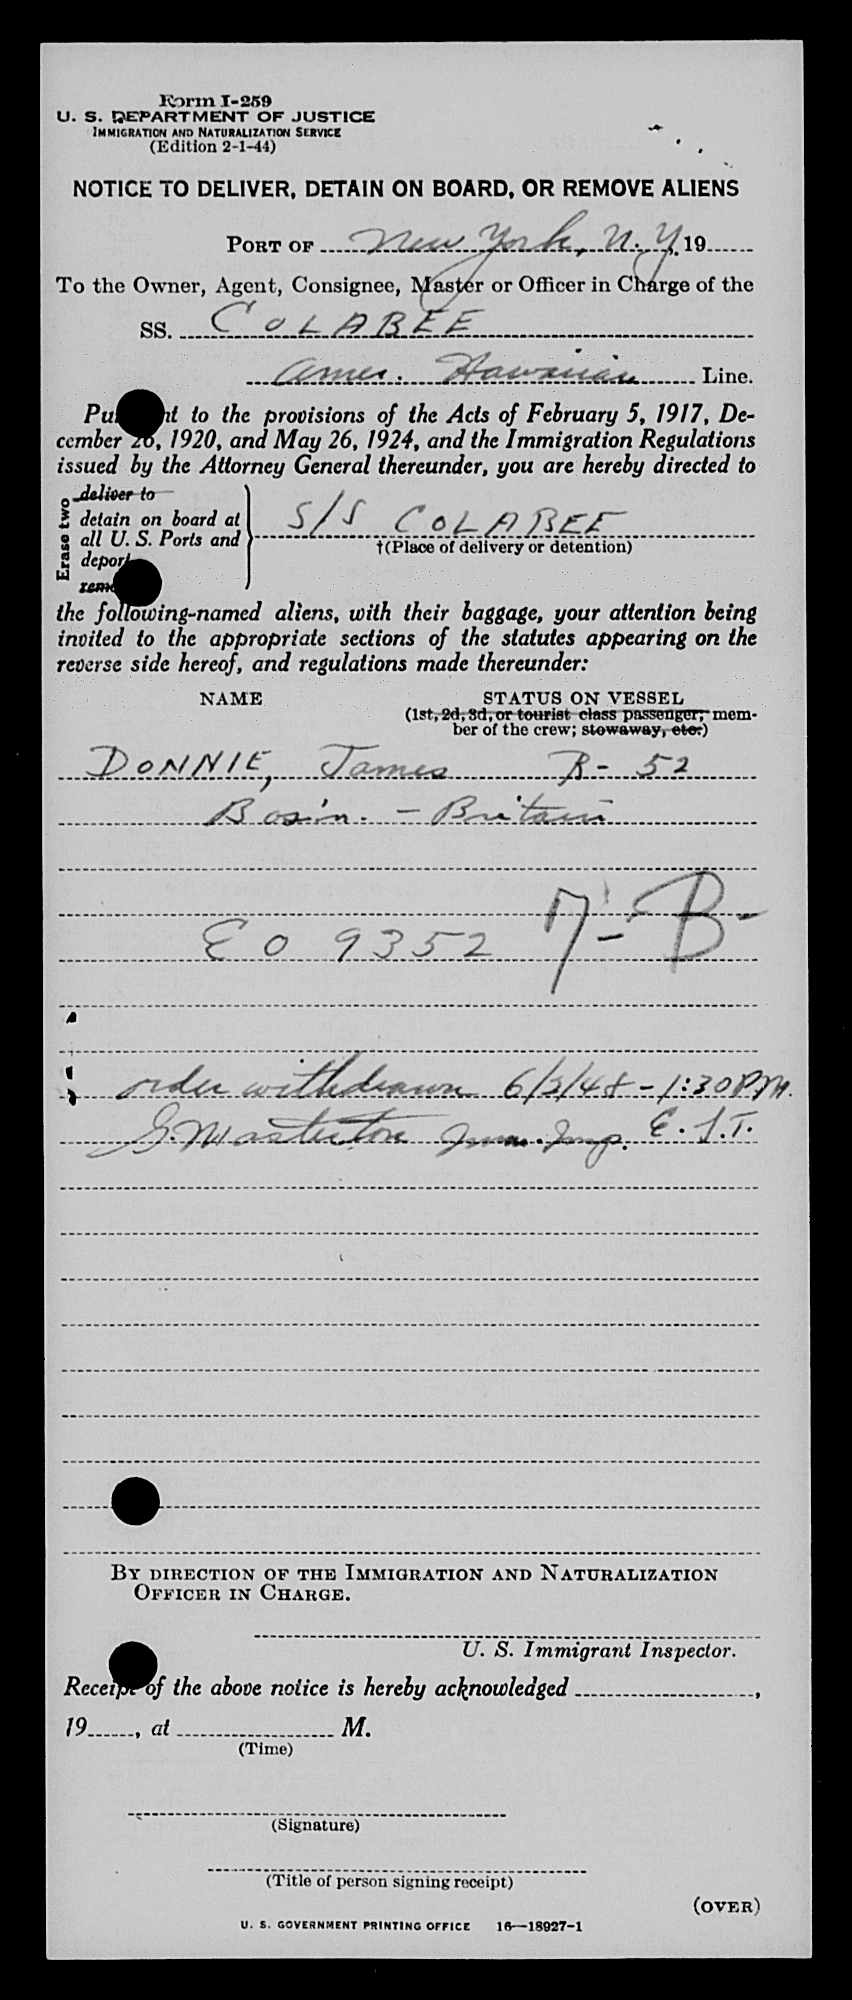 Form I-259
U. S. DEPARTMENT OF JUSTICE
IMMIGRATION AND NATURALIZATION SERVICE
(Edition 2-1-44)
NOTICE TO DELIVER, DETAIN ON BOARD, OR REMOVE ALIENS
PORT OF New York, N.Y., 19
To the Owner, Agent, Consignee, Master or Officer in Charge of the
SS. COLABEE
Amer. Hawaiian Line.
Pu nt to the provisions of the Acts of February 5, 1917, De-
cember 26, 1920, and May 26, 1924, and the Immigration Regulations
issued by the Attorney General thereunder, you are hereby directed to
Erase two
deliver to
detain on board at
all U. S. Ports and
deport
S/S COLABEE
†(Place of delivery or detention)
the following-named aliens, with their baggage, your attention being
invited to the appropriate sections of the statutes appearing on the
reverse side hereof, and regulations made thereunder:
NAME STATUS ON VESSEL
(1st, 2d, 3d, or tourist class passenger, mem-
ber of the crew; stowaway, etc.)
DONNIE, James R- 52
Bosin. - Britain
EO 9352 7-B-
order withdrawn 6/3/48 - 1:30 PM.
G. Masterton Imm. Insp. E.S.T.
BY DIRECTION OF THE IMMIGRATION AND NATURALIZATION
OFFICER IN CHARGE.
U. S. Immigrant Inspector.
Receipt of the above notice is hereby acknowledged ,
19 , at M.
(Time)
(Signature)
(Title of person signing receipt)
(OVER)
U. S. GOVERNMENT PRINTING OFFICE 16—18927-1